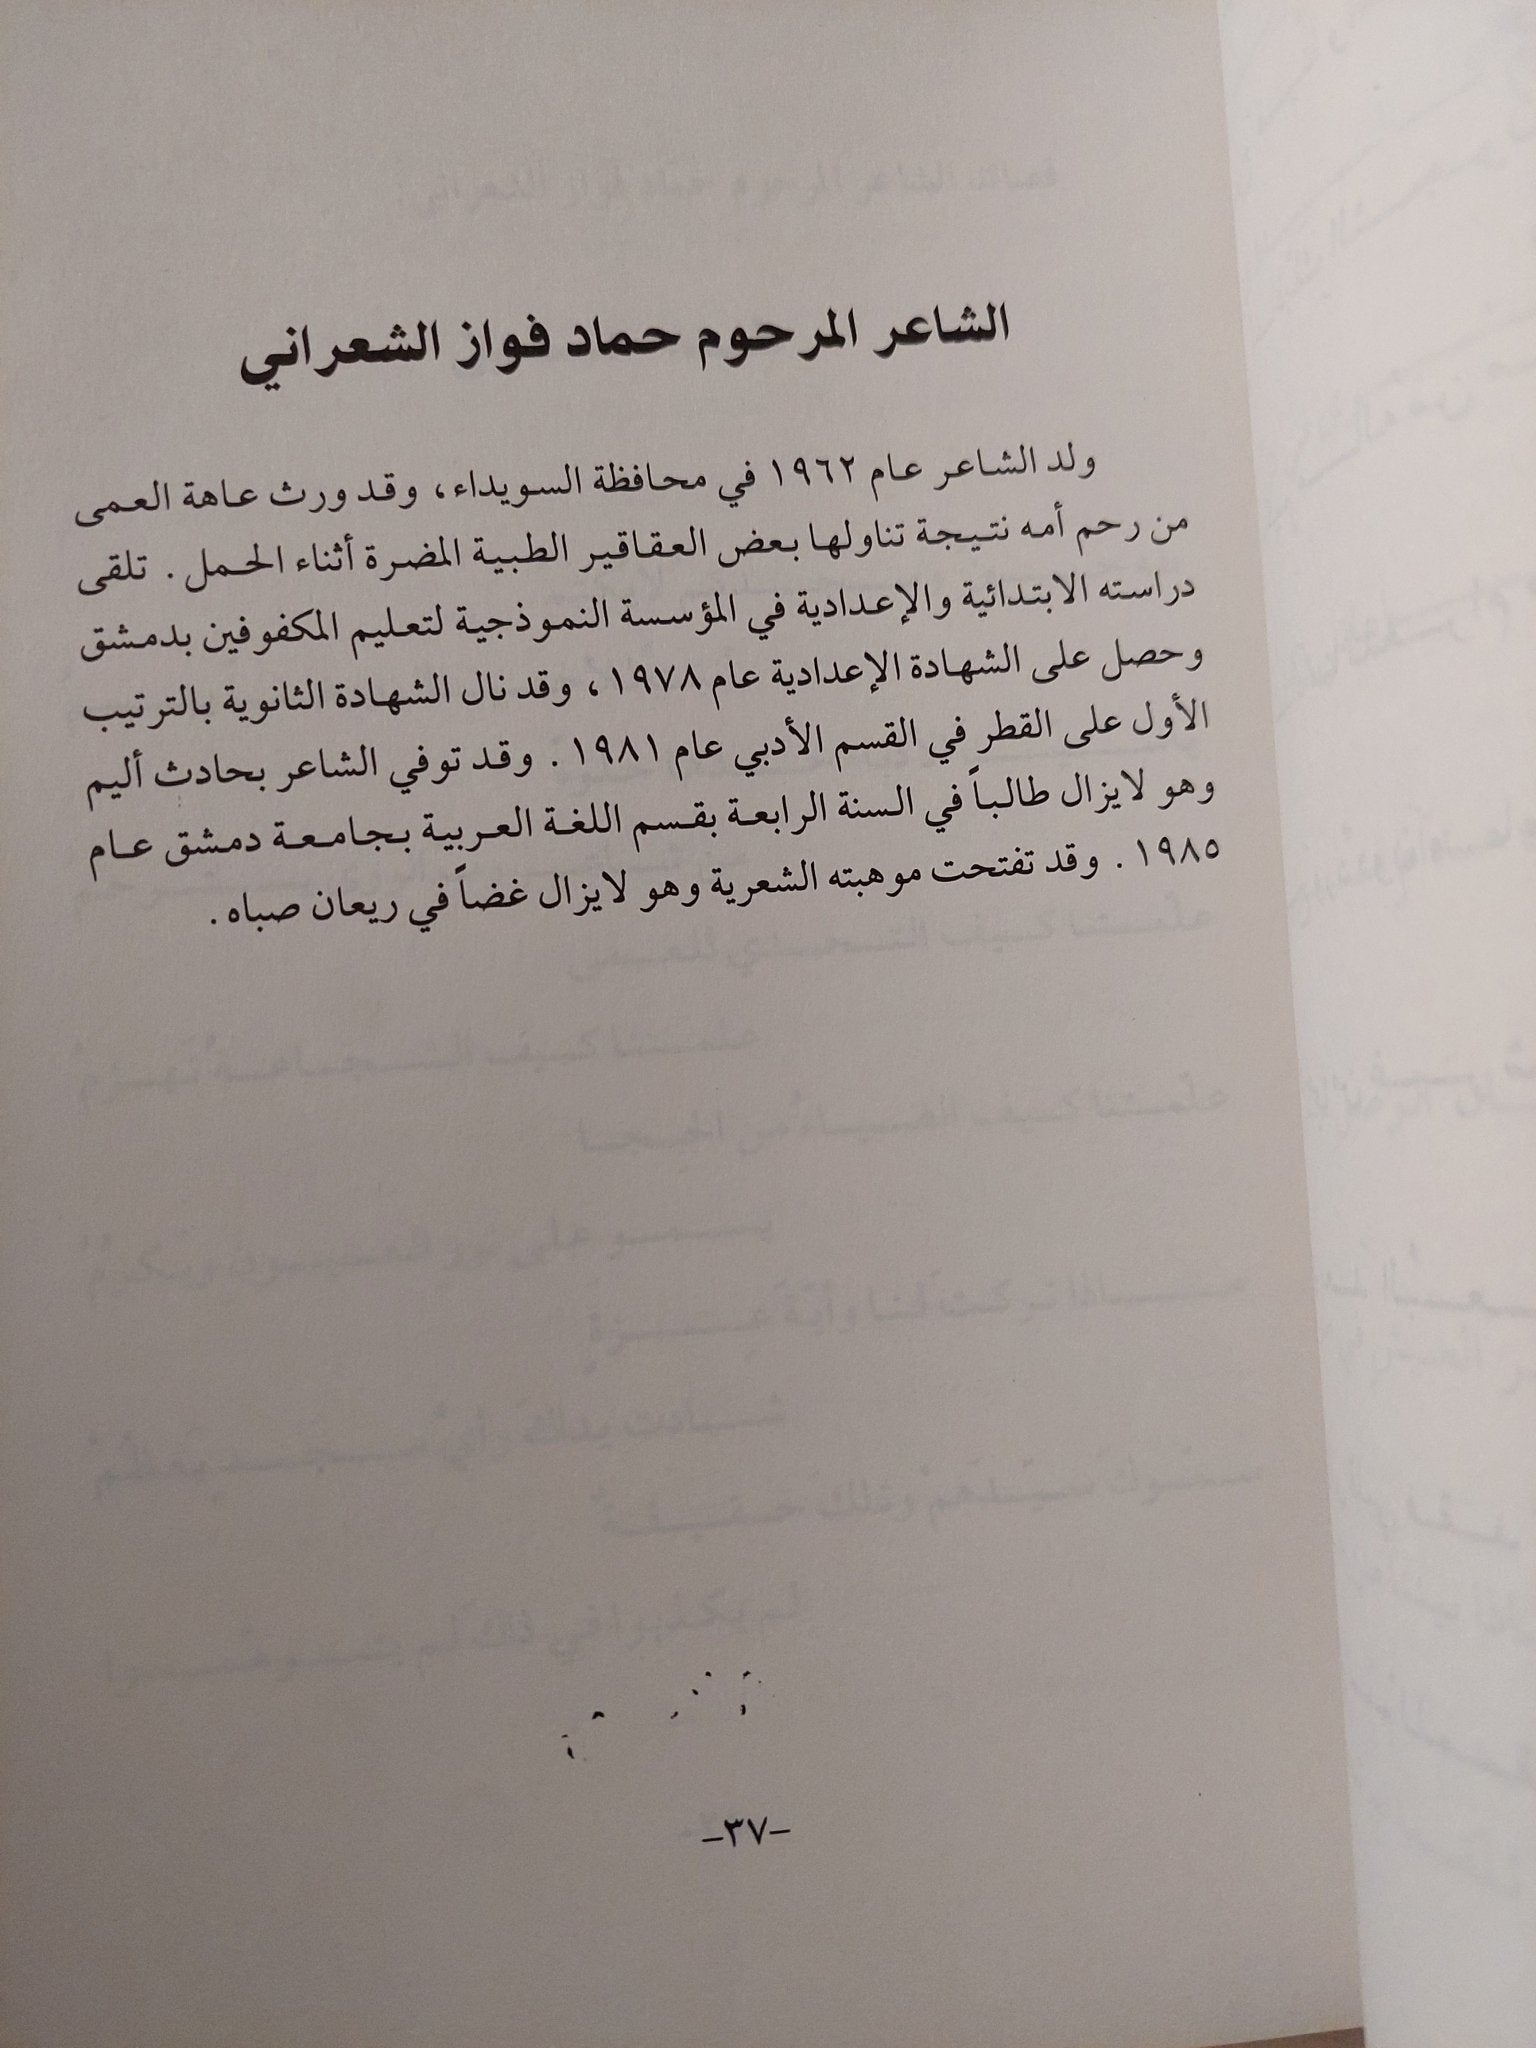 الشاعر المرحوم حماد فواز الشعراني
ولد الشاعر عام ١٩٦٢ في محافظة السويداء، وقد ورث عاهة العمى
من رحم أمه نتيجة تناولها بعض العقاقير الطبية المضرة أثناء الحمل. تلقى
دراسته الابتدائية والإعدادية في المؤسسة النموذجية لتعليم المكفوفين بدمشق
وحصل على الشهادة الإعدادية عام ١٩٧٨، وقد نال الشهادة الثانوية بالترتيب
الأول على القطر في القسم الأدبي عام ١٩٨١. وقد توفي الشاعر بحادث أليم
وهو لايزال طالباً في السنة الرابعة بقسم اللغة العربية بجامعة دمشق عام
١٩٨٥. وقد تفتحت موهبته الشعرية وهو لايزال غضاً في ريعان صباه.
-٣٧-